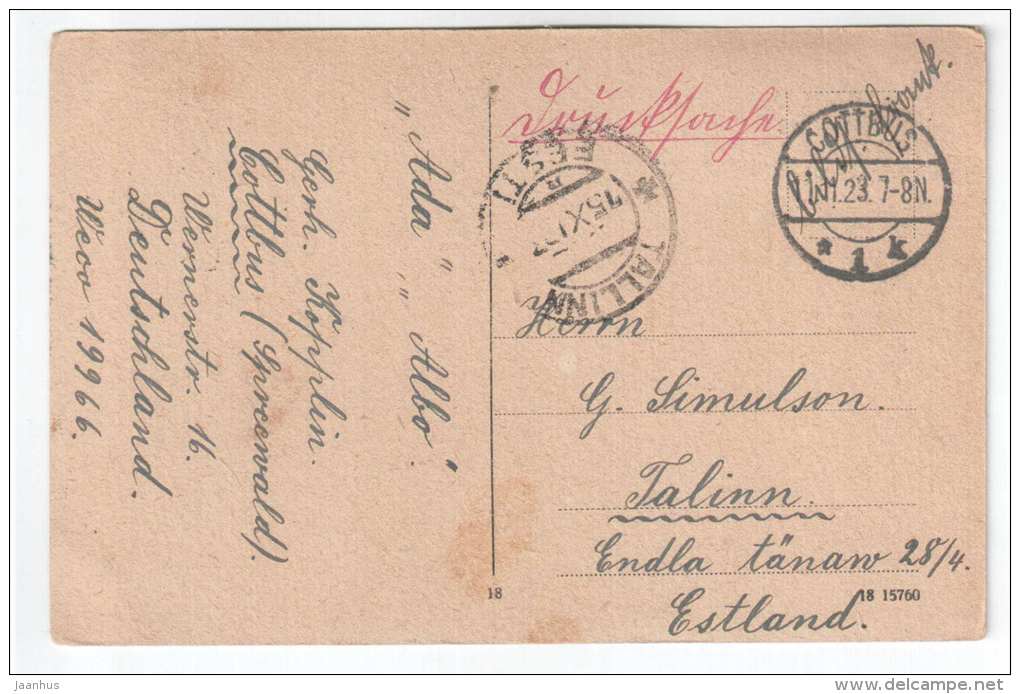 „Ada„ „Albo".
Gerh. Kopplin.
Cottbus (Spreewald).
Wernerstr. 16.
Deutschland.
Wevo 19966.
Drucksache
frank.
COTTBUS
11.23. 7-8N.
* 1 k
EESTI
TALLINN
Herrn
G. Simulson.
Talinn.
Endla tänaw 28/4.
Estland.
18
18 15760
jaanhus
www.delcampe.net